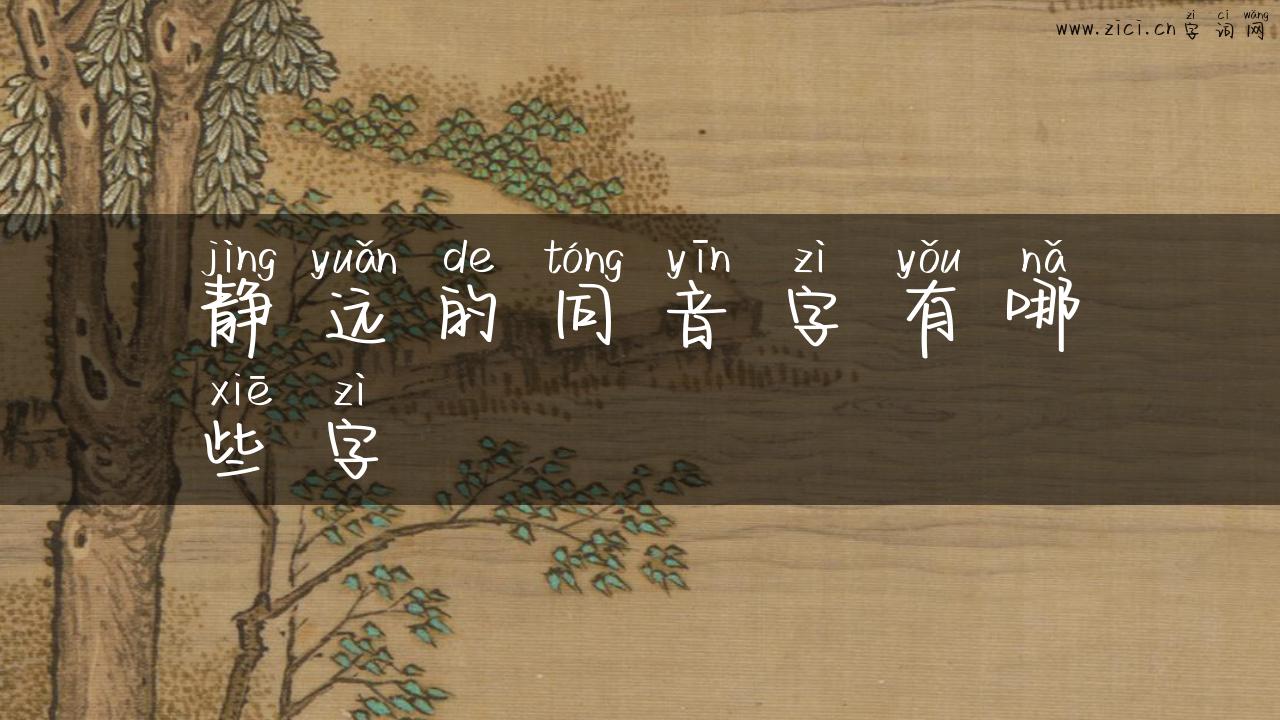 zì cí wǎng
www.zici.cn 字词网
jìng yuǎn de tóng yīn zì yǒu nǎ
静远的同音字有哪
xiē zì
些字